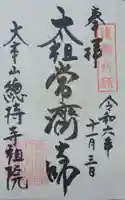 奉拝
令和六年
十一月三日
太祖常済大師
大本山總持寺祖院